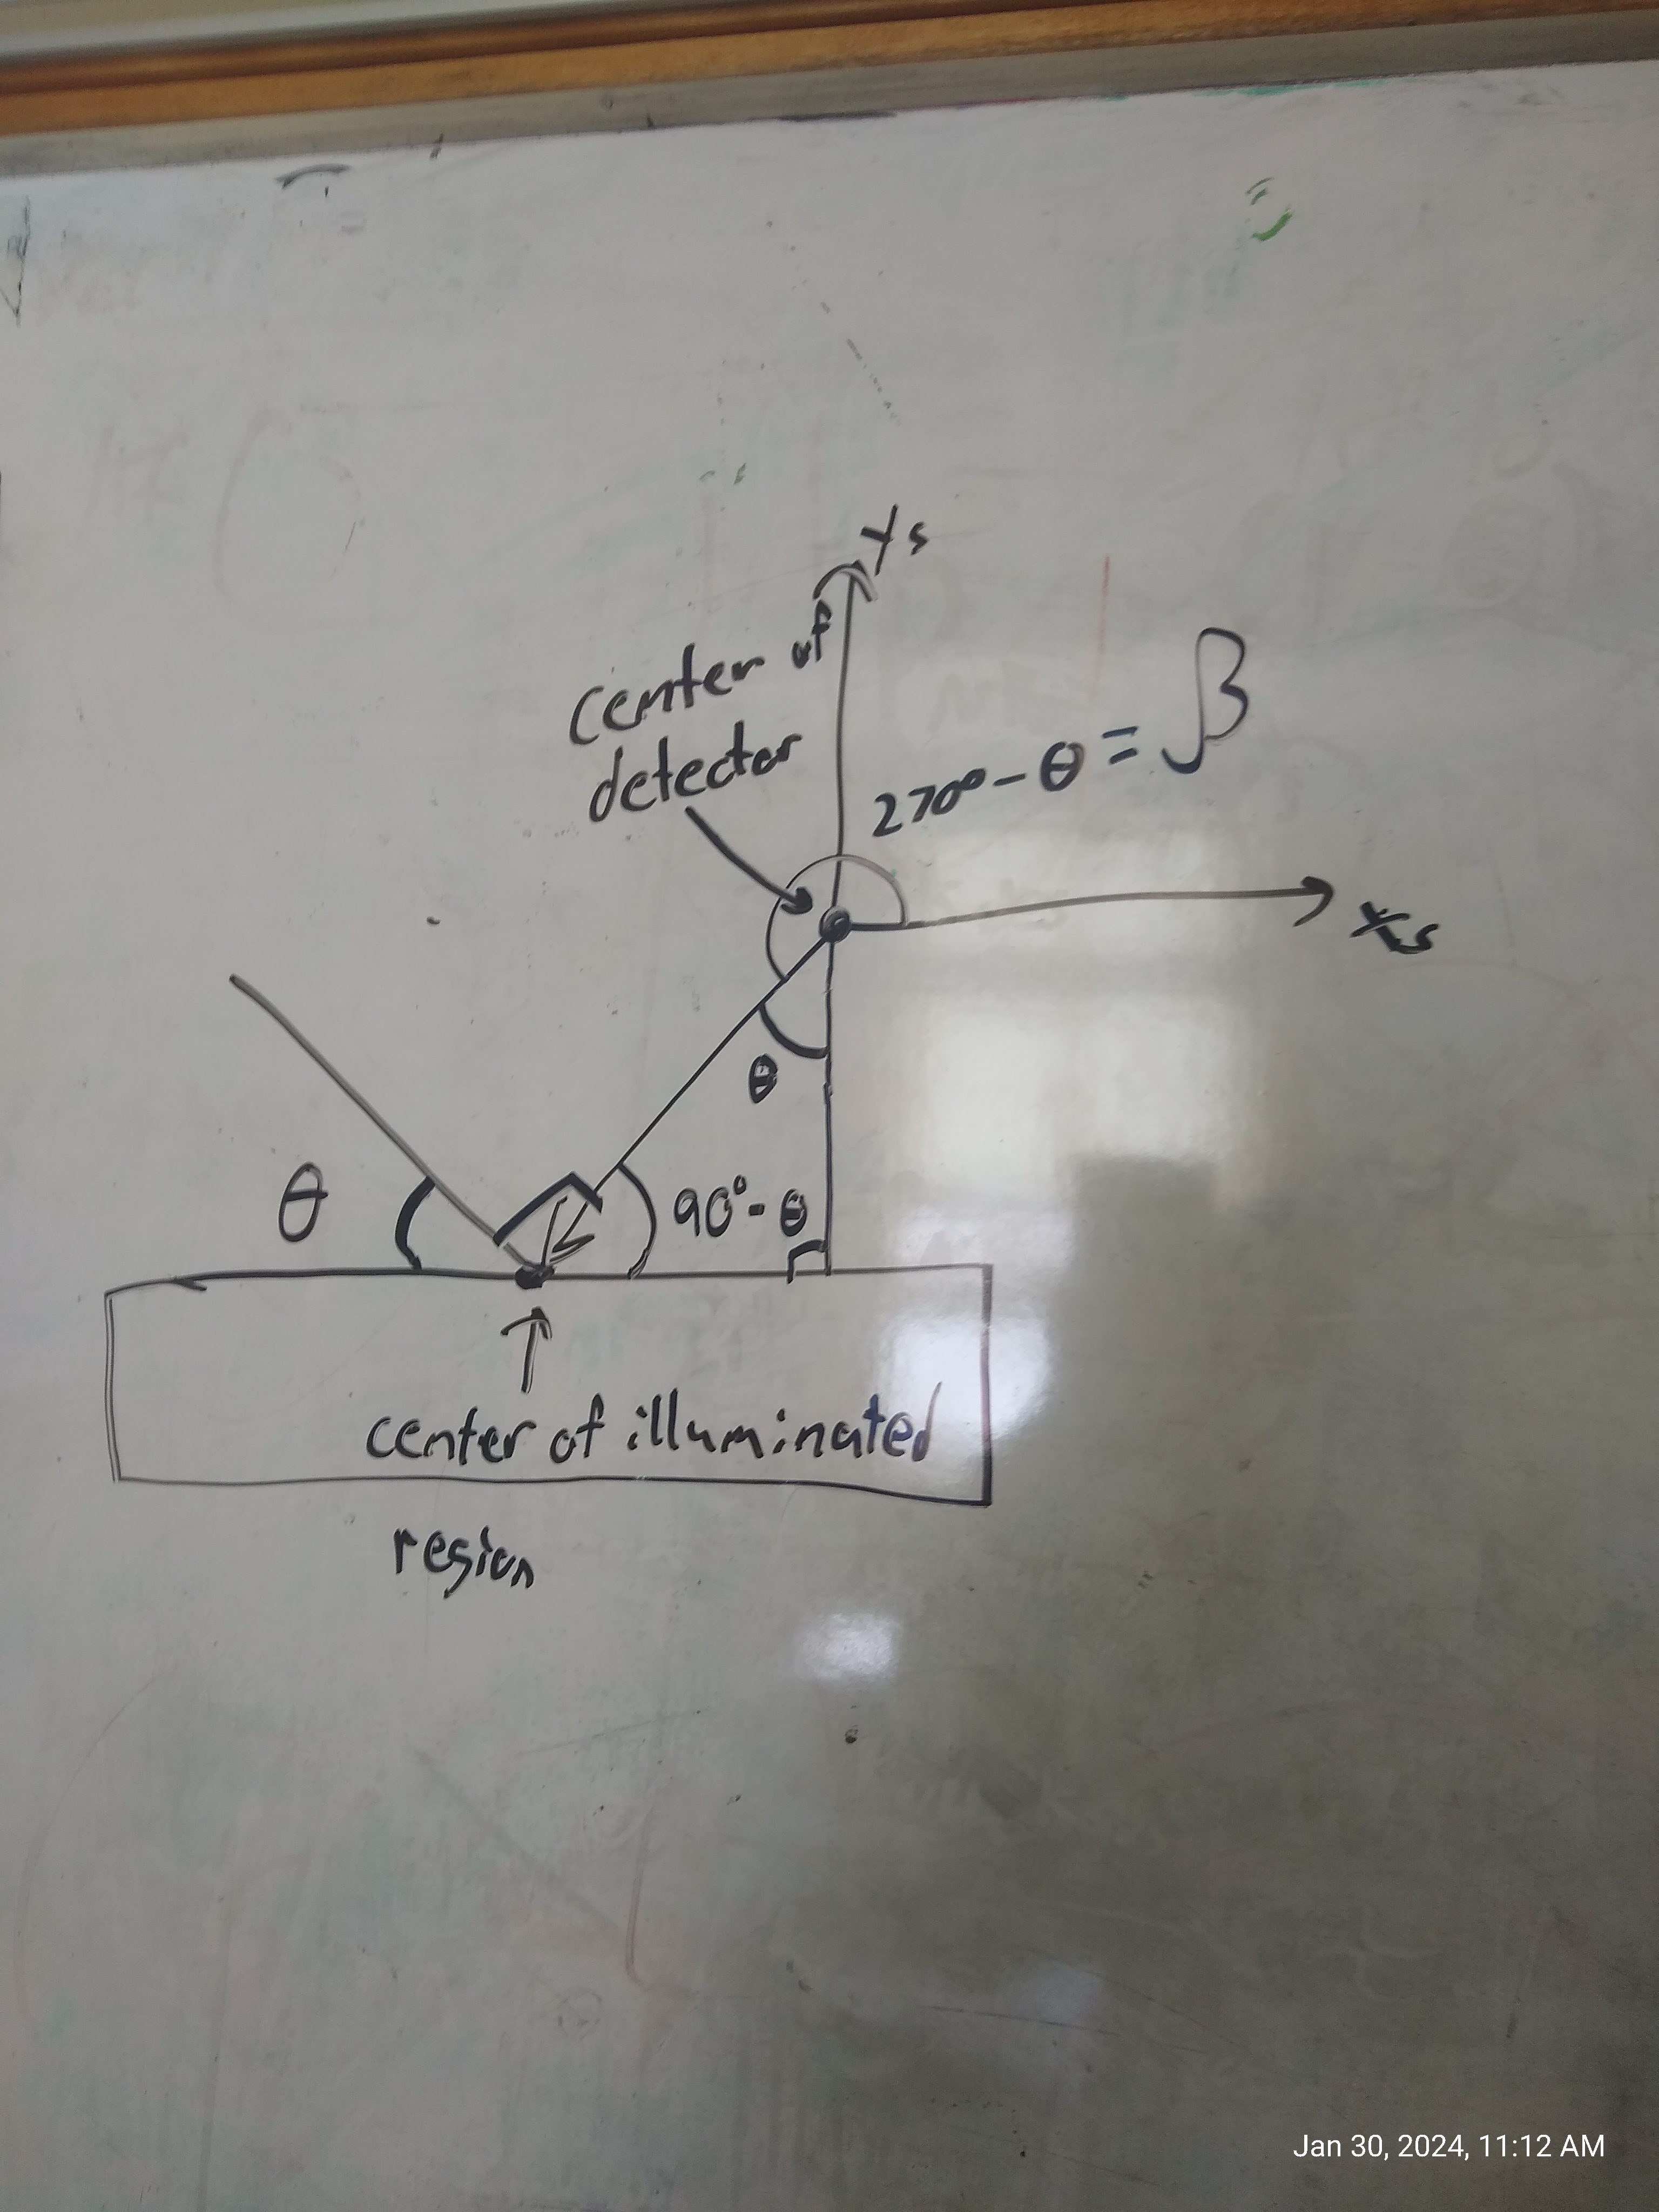 Ys
center of
detector
270° - θ = β
Xs
θ
θ
90° - θ
center of illuminated
region
Jan 30, 2024, 11:12 AM